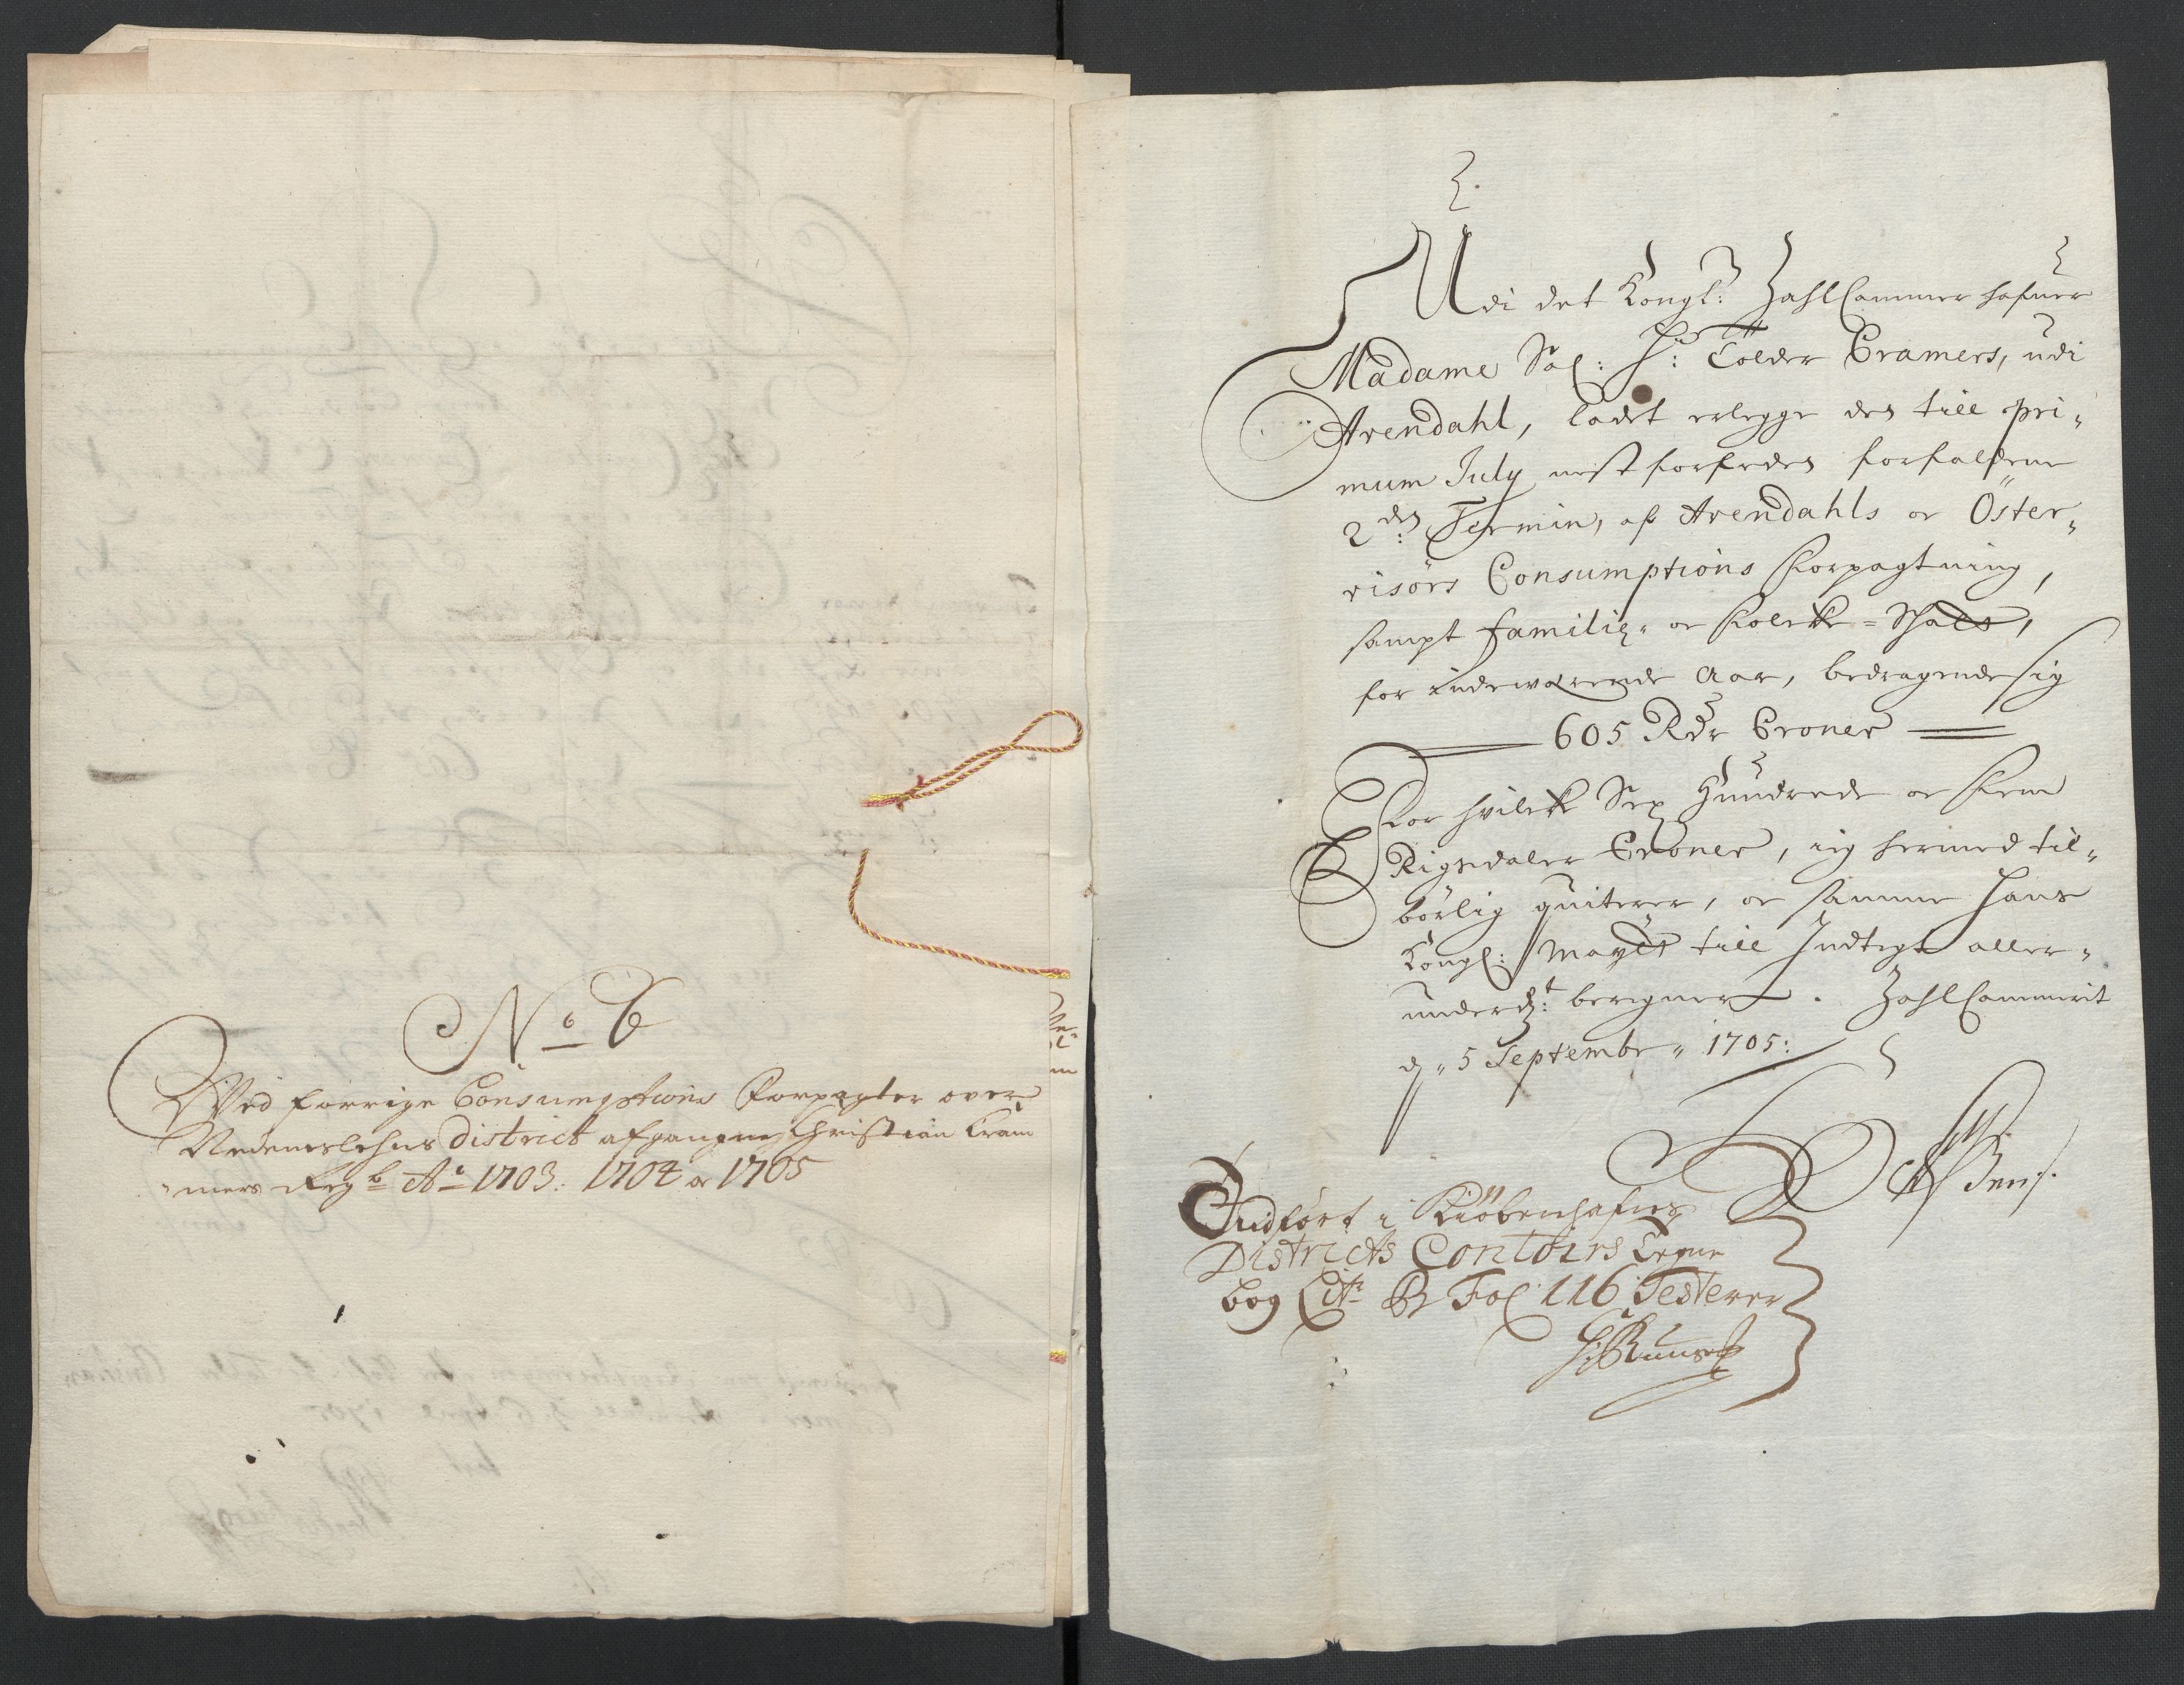 No 6
Ved forrige Consumptions Forpagter over
Nedeneslehns District afgangne Christian Cram
"mers Regb Ao 1703: 1704 og 1705
Udi det Kongl: Zahl Cammer hafuer
Madame Sal: Hr: Tolder Cramers, udi
Arendahl, ladet erlegge den till pri„
mum July nest forleden forfaldene
2den Termin, af Arendahls og Öster„
risörs Consumptions Forpagtning,
sampt familie- og Folcke-Schatt,
for indeværende Aar, bedragende sig
605 Rdr Croner
For hvilcke Sex Hundrede og Fem
Rigsdaler Croner, ieg hermed til„
börlig quiterer, og samme Hans
Kongl: Maytt till Indtegt aller„
underd:t beregner. Zahl Cammerit
d„ 5 Septembr„ 1705:
Indfört i Kiöbenhafns
Districts Contoirs Tegne
bog Litr B Fol 116 Testerer